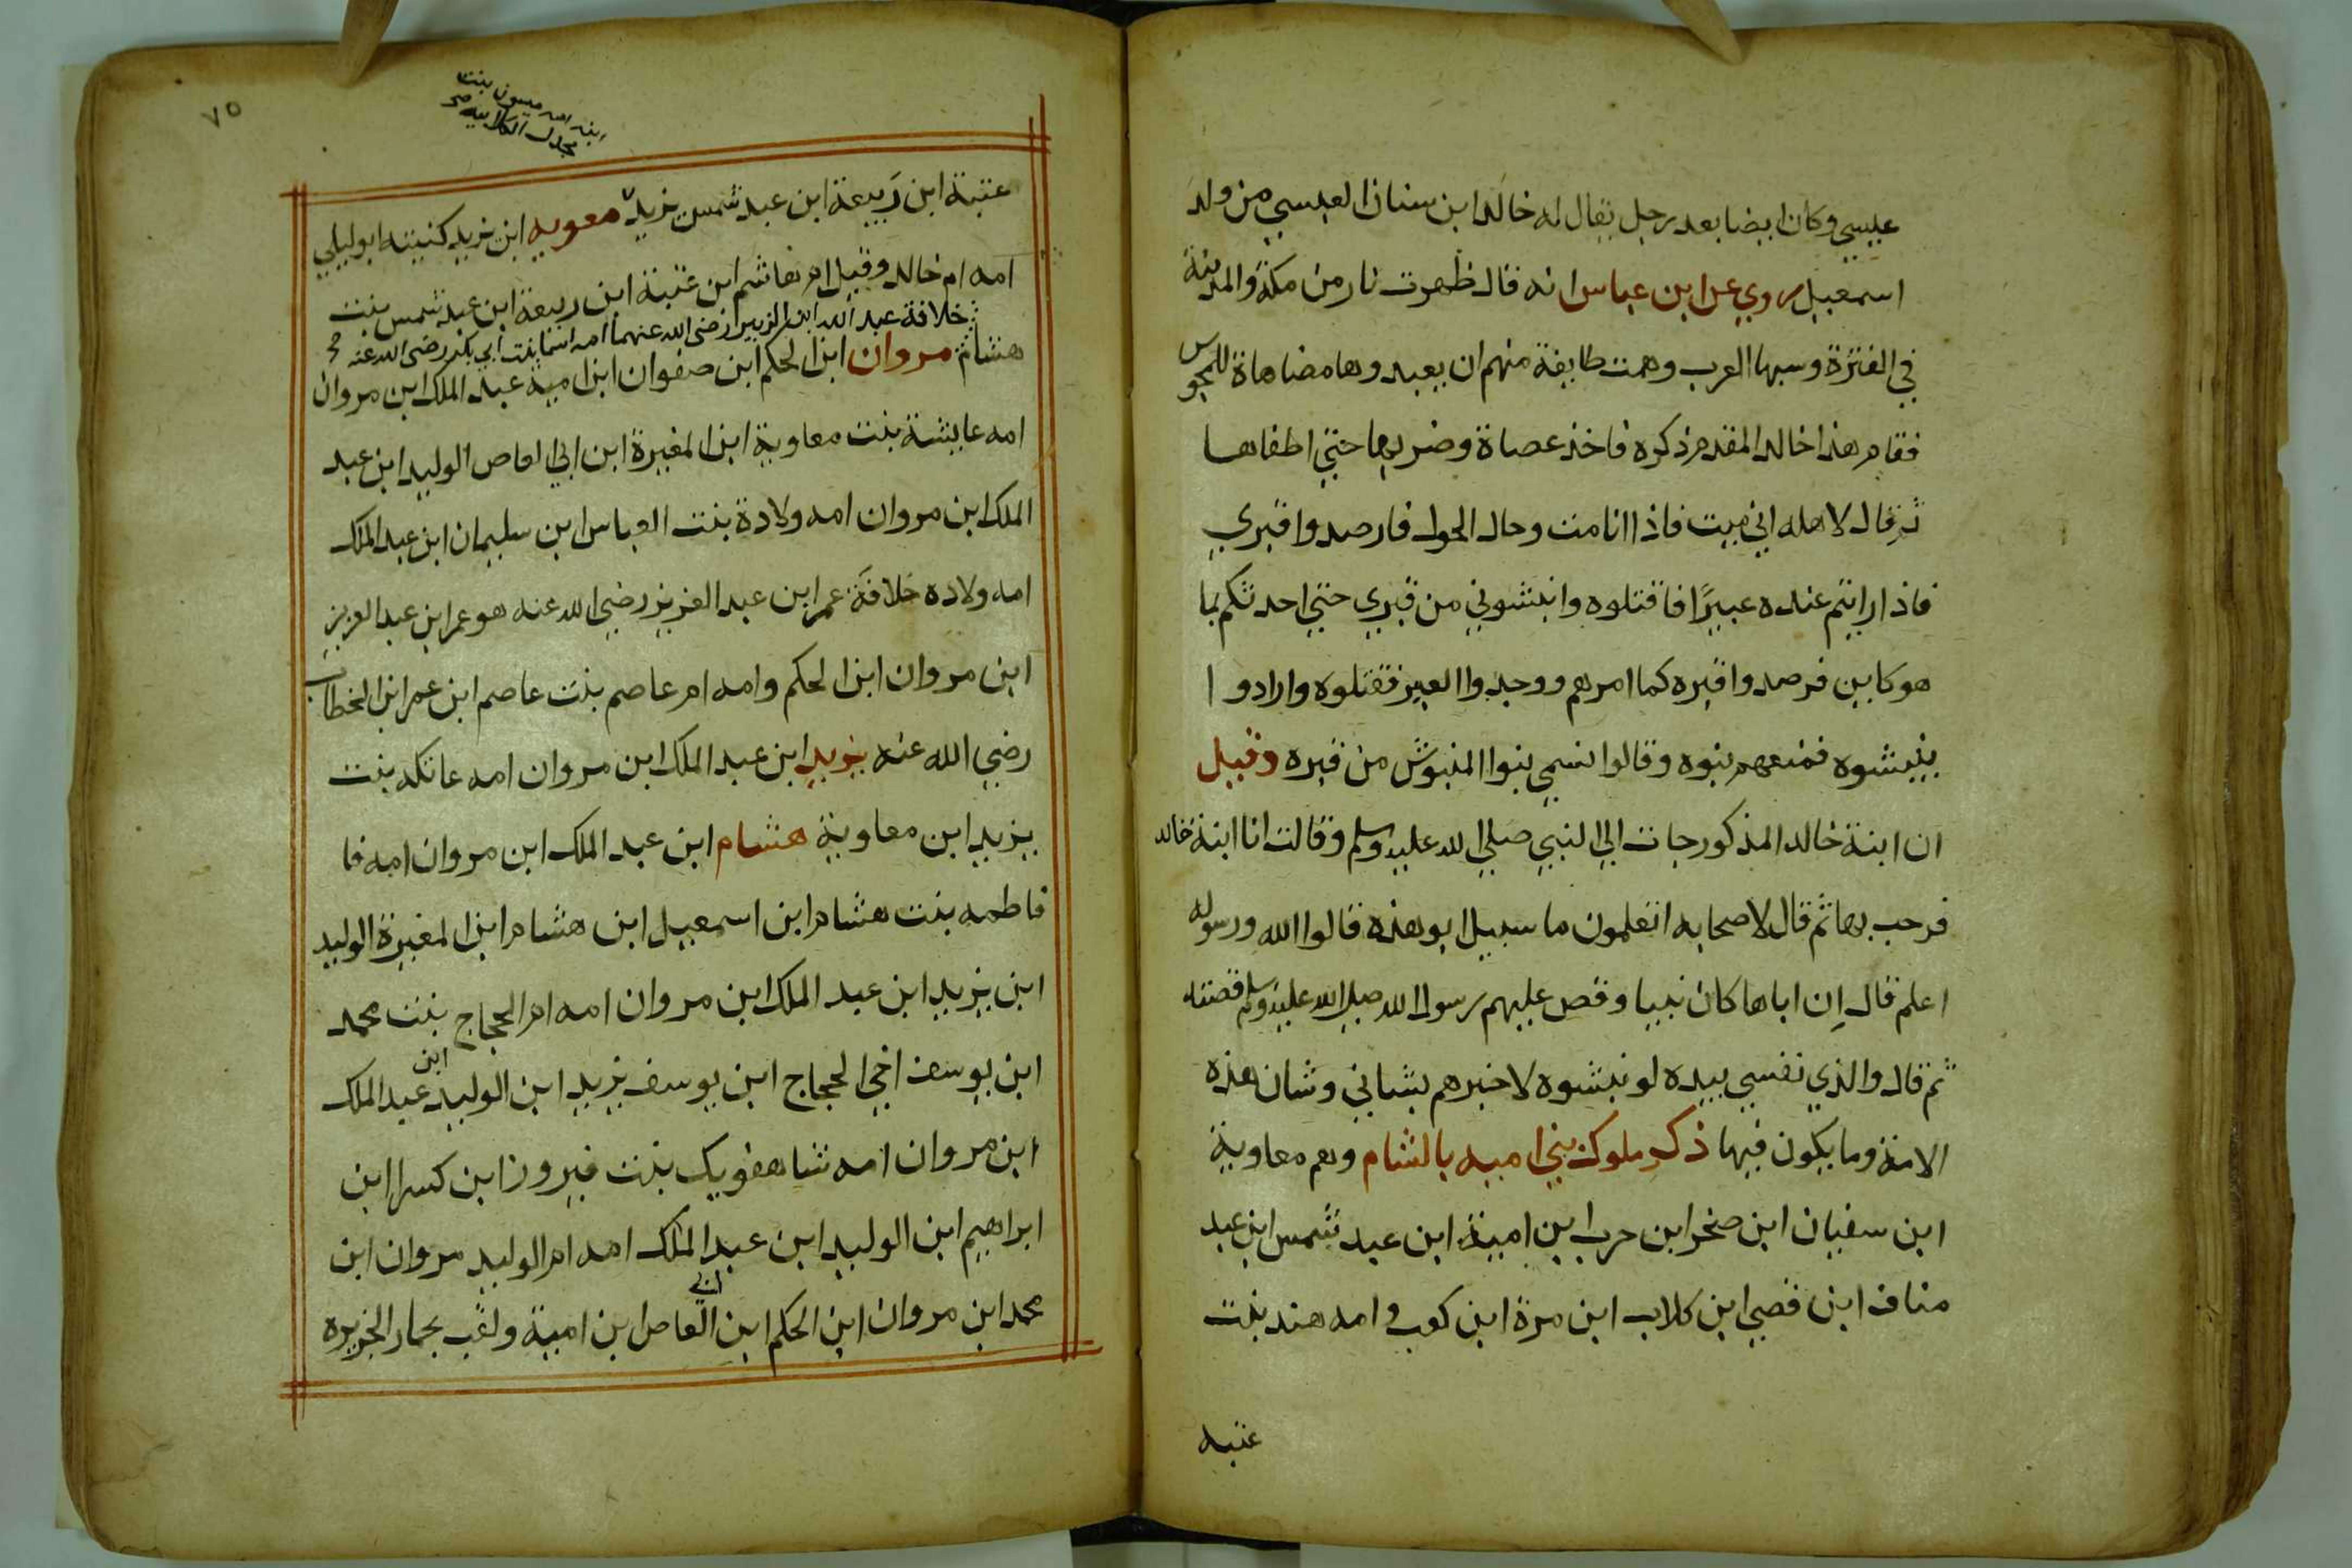 عيسي وكان ايضا بعد رجل يقال له خالد ابن سنان العبسي من ولد
اسمعيل روي عن ابن عباس انه قال ظهرت نار من مكة والمدينة
في الفترة وسبها العرب وهمت طايفة منهم ان يعبدوها مضاهاة للمجوس
فقام هذا خالد المقدم ذكره فاخذ عصاة وضربها حتي اطفاها
ثم قال لاهله اني ميت فاذا انا مت وحال الحول فارصدوا قبري
فاذا رايتم عنده عيرًا فاقتلوه وانبشوني من قبري حتي احدثكم بما
هو كاين فرصدوا قبره كما امرهم ووجدوا العير فقتلوه وارادوا
ينبشوه فمنعهم بنوه وقالوا نسمي بنوا المنبوش من قبره وقيل
ان ابنة خالد المذكور جات الي النبي صلي الله عليه وسلم وقالت انا ابنة خالد
فرحب بها ثم قال لاصحابه اتعلمون ما سبيل ابو هذه قالوا الله ورسوله
اعلم قال اِن اباها كان نبيا وقص عليهم رسول الله صلي الله عليه وسلم قصته
ثم قال والذي نفسي بيده لو نبشوه لاخبرهم بشاني وشان هذه
الامة وما يكون فيها ذكر ملوك بني اميه بالشام وهم معاوية
ابن سفيان ابن صخر ابن حرب بن امية ابن عبد شمس ابن عبد
مناف ابن قصي ابن كلاب ابن مرة ابن كعب وامه هند بنت
عتبه
٧٥
ابنه امه ميسون بنت
بجدل الكلابيه صح
عتبة ابن رَبيعة ابن عبد شمس يزيد معويه ابن يزيد كنيته ابو ليلي
امه ام خالد وقيل ام هاشم ابن عتبة ابن ربيعة ابن عبد شمس بنت
خلافة عبد الله ابن الزبير رضي الله عنهما امه اسما بنت ابي بكر رضي الله عنه
هشام مروان ابن الحكم ابن صفوان ابن امية عبد الملك ابن مروان
امه عايشة بنت معاوية ابن المغيرة ابن ابي العاص الوليد ابن عبد
الملك ابن مروان امه ولادة بنت العباس ابن سليمان ابن عبد الملك
امه ولاده خلافة عمر ابن عبد العزيز رضي الله عنه هو عمر ابن عبد العزيز
ابن مروان ابن الحكم وامه ام عاصم بنت عاصم ابن عمر ابن الخطاب
رضي الله عنه يزيد ابن عبد الملك ابن مروان امه عاتكه بنت
يزيد ابن معاوية هشام ابن عبد الملك ابن مروان امه فا
فاطمه بنت هشام ابن اسمعيل ابن هشام ابن المغيرة الوليد
ابن يزيد ابن عبد الملك ابن مروان امه ام الحجاج بنت محمد
ابن يوسف اخي الحجاج ابن يوسف يزيد ابن الوليد ابن عبد الملك
ابن مروان امه شاهفويك بنت فيروز ابن كسرا ابن
ابراهيم ابن الوليد ابن عبد الملك امه ام الوليد مروان ابن
محمد ابن مروان ابن الحكم ابن ابي العاص ابن امية ولقب بحمار الجزيره